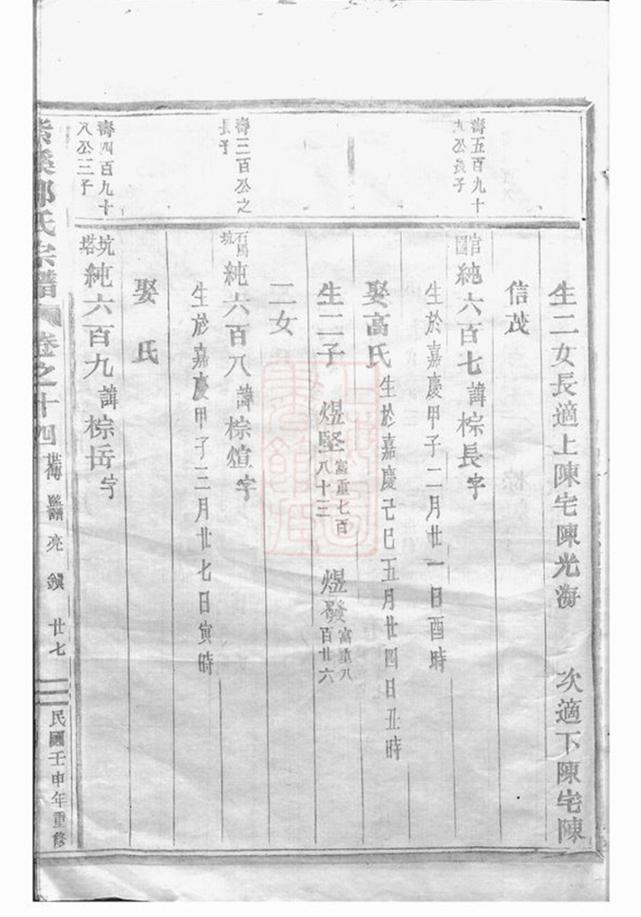 生二女長適上陳宅陳光海 次適下陳宅陳
信茂
壽五百九十
九公長子
官園純六百七諱棕長字
生於嘉慶甲子二月廿一日酉時
娶高氏生於嘉慶己巳五月廿四日丑時
生二子 煜堅富重七百八十三 煜發富重八百廿六
二女
壽三百公之
長子
石馬坑純六百八諱棕煊字
生於嘉慶甲子三月廿七日寅時
娶氏
壽四百九十
八公三子
坑塔純六百九諱棕岳字
紫溪鄭氏宗譜 卷之十四 亮 鎮 廿七 民國壬申年重修